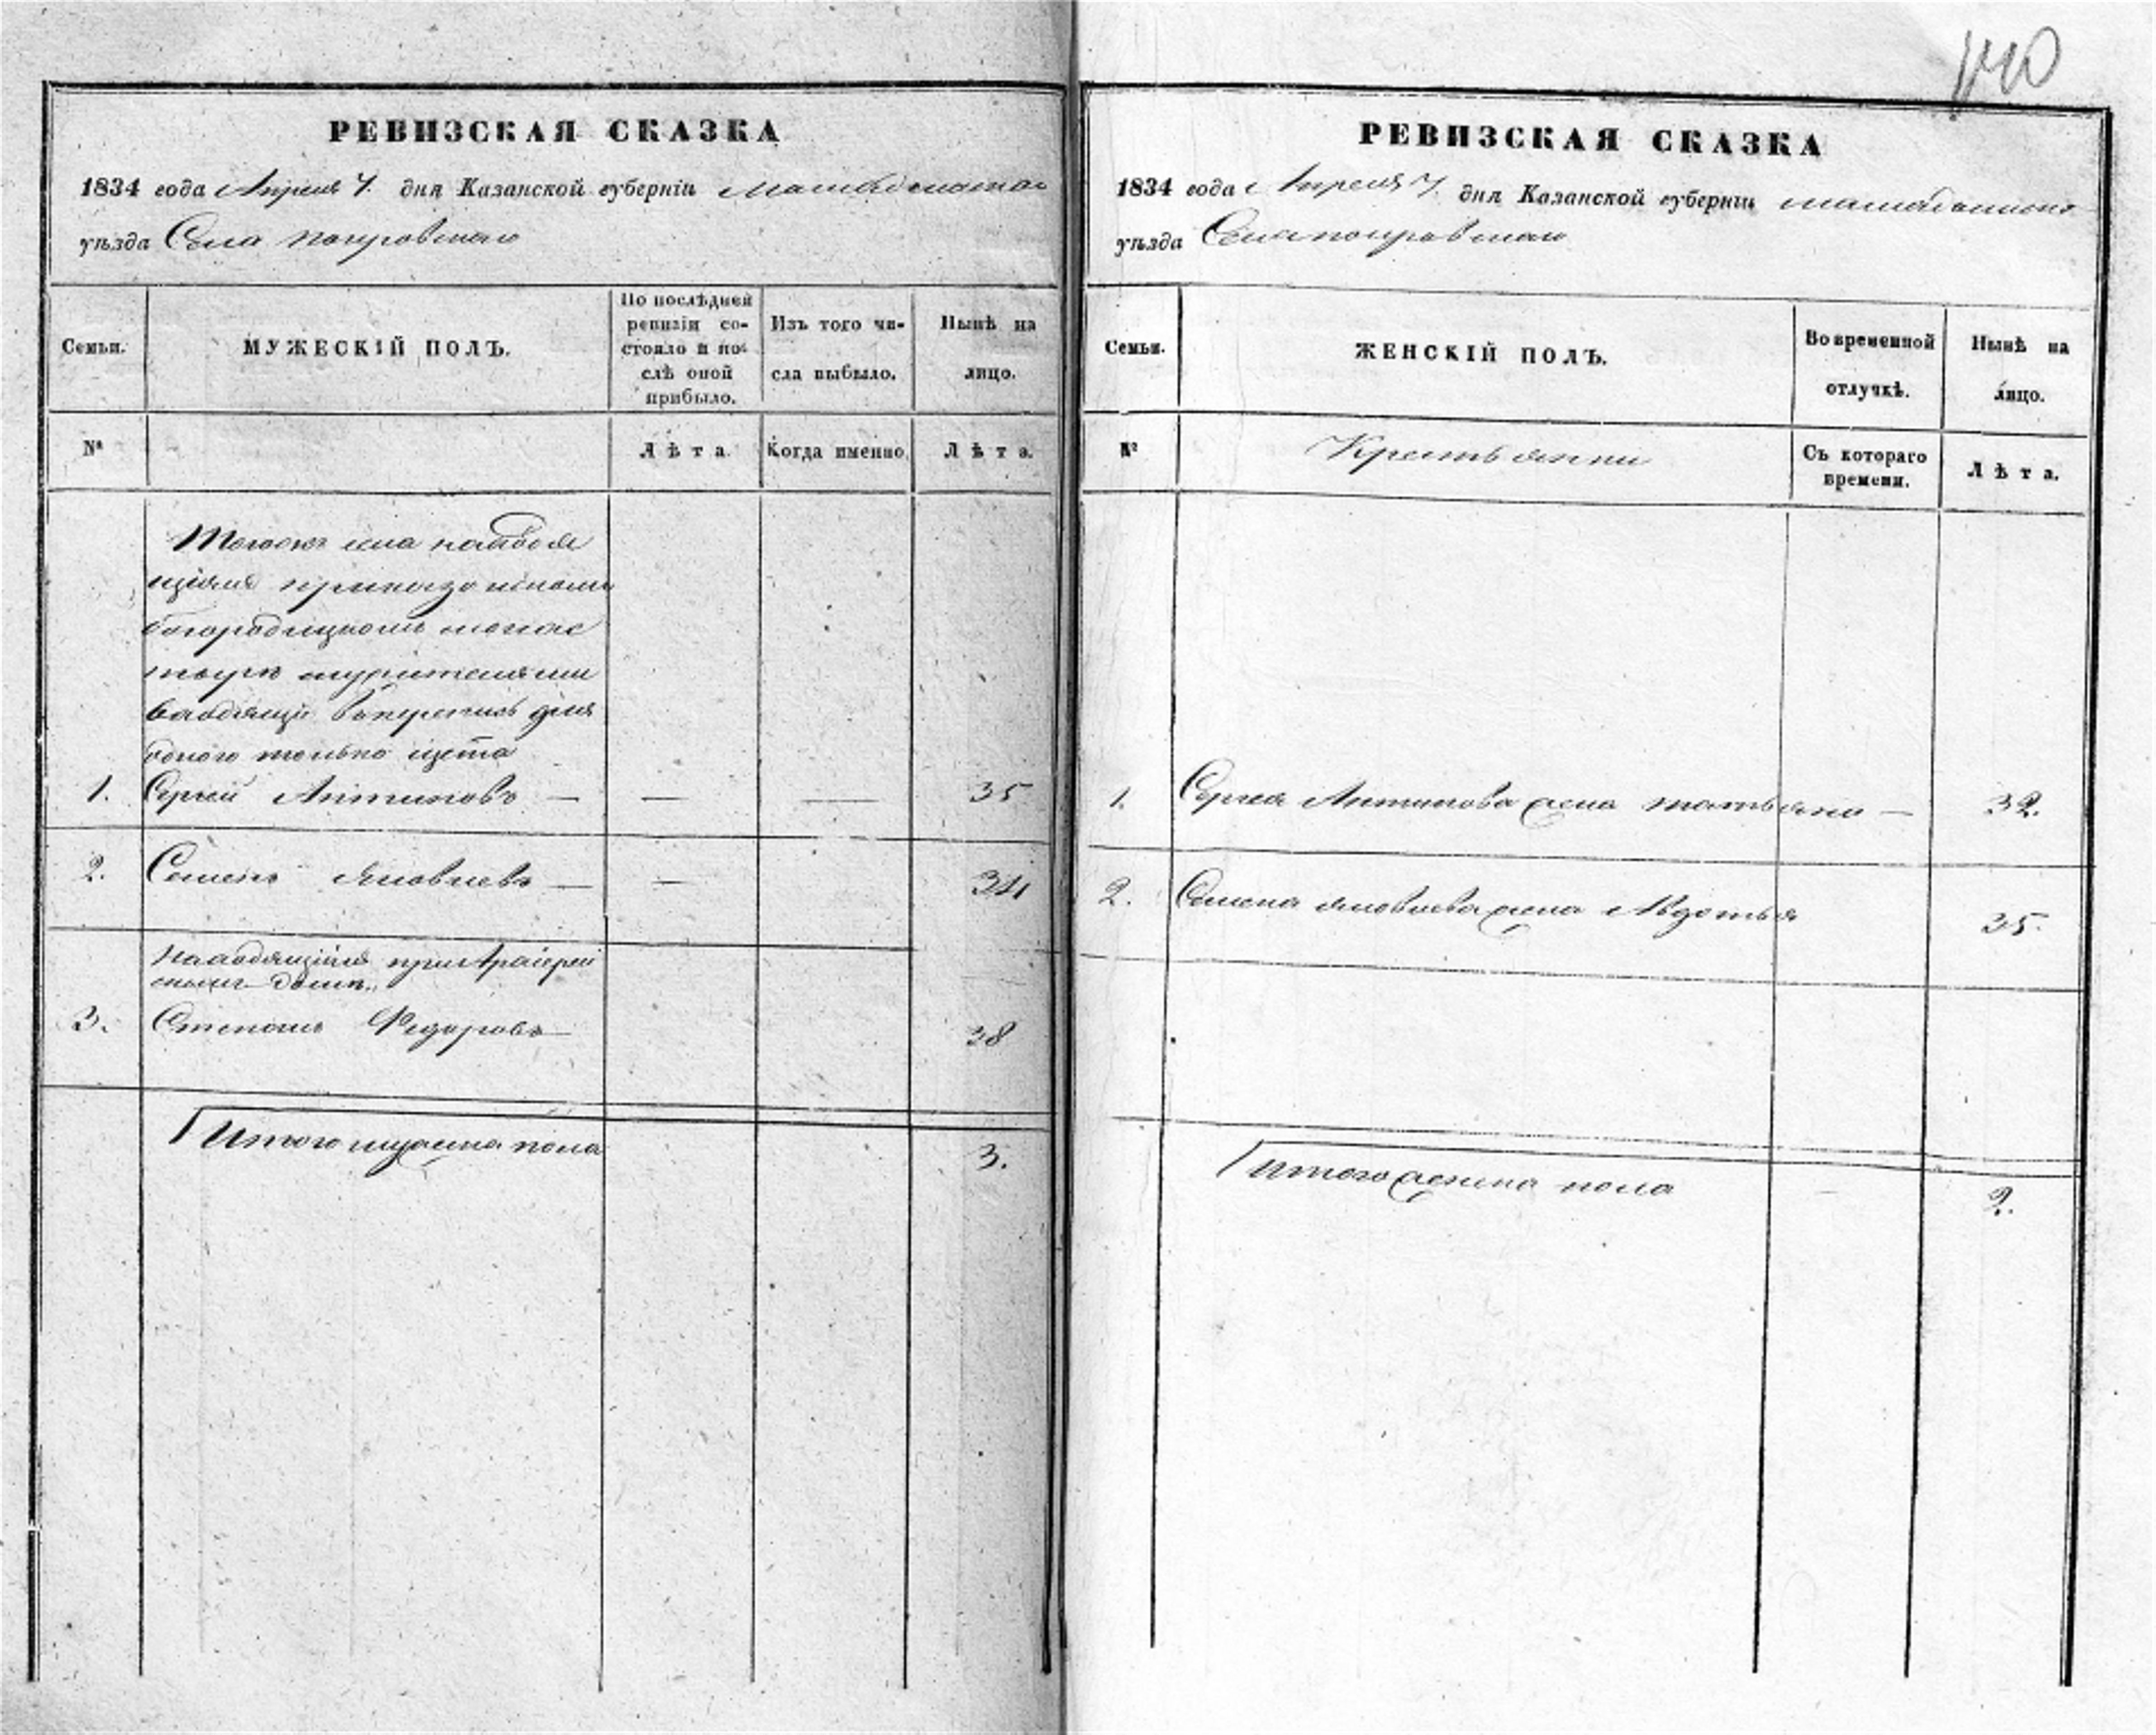 140
РЕВИЗСКАЯ СКАЗКА
1834 года Апреля 7. дня Казанской губерніи Мамадышскаго
уѣзда Села покровскаго
Семьи.
МУЖЕСКІЙ ПОЛЪ.
По послѣдней
ревизіи со-
стояло и по-
слѣ оной
прибыло.
Изъ того чи-
сла выбыло.
Нынѣ на
лицо.
№
Лѣта.
Когда именно.
Лѣта.
Тогожъ села находя
щіяся при
богородицкомъ монас
тырѣ служителями
входящи вперепись для
одного только щета
1. Сергей Антиповъ — — — 35
2. Семенъ Яковлевъ — — 34
находящійся приАрхіерей
скомъ домѣ.
3. Степанъ Федоровъ — 38
Итого мужска пола 3.
РЕВИЗСКАЯ СКАЗКА
1834 года Апреля 7. дня Казанской губерніи мамадышскаго
уѣзда Села покровскаго
Семьи.
ЖЕНСКІЙ ПОЛЪ.
Во временной
отлучкѣ.
Нынѣ на
лицо.
№
Крестьянки
Съ котораго
времени.
Лѣта.
1. Сергея Антипова жена татьяна — 32.
2. Семена яковлева жена Авдотья 35.
итого женска пола 2.